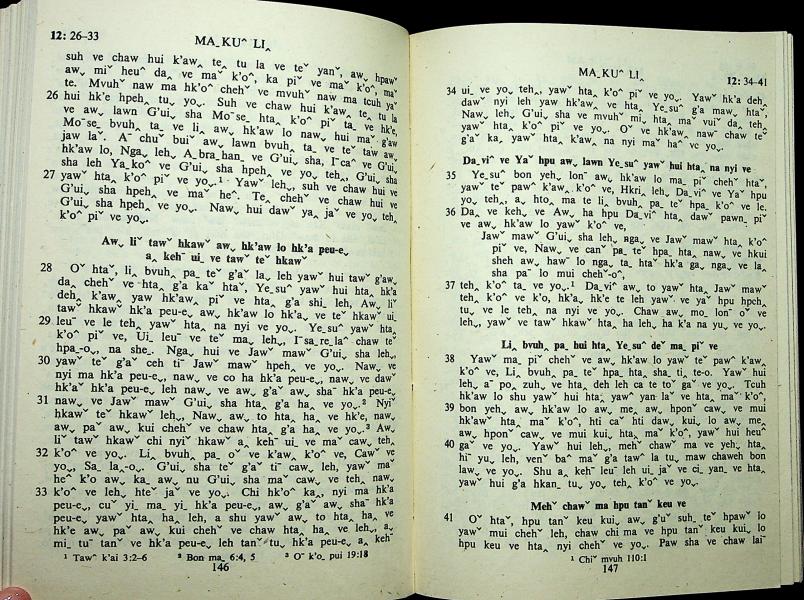 12: 26–33
MA˗ KUˆ LI‸
suh ve chaw hui k'aw‸ te˗ tu la ve teˇ yanˇ, aw˯ hpawˇ
aw˯ miˇ heuˆ da‸ ve maˇ k'oˆ, ka piˇ ve maˇ k'oˆ, maˇ
te. Mvuhˇ naw ma hk'oˆ chehˇ ve mvuhˇ naw ma tcuh yaˇ
26 hui hk'e hpeh˯ tu˯ yo˯. Suh ve chaw hui k'aw‸ te˗ tu la
ve aw˯ lawn G'ui˯ sha Moˉse˗ hta‸ k'oˆ piˇ ta˗ ve hk'e,
Moˉse˗ bvuh˯ ta˗ ve li‸ aw˯ hk'aw lo naw˯ hui maˇ g'aw
jaw laˇ. Aˉ chuˇ bui˯ aw˯ lawn bvuh˯ ta˗ ve teˇ taw aw˯
hk'aw lo, Nga˯ leh˯ A˗bra˗han˗ ve G'ui˯ sha, Iˉcaˆ ve G'ui˯
sha leh Ya˗koˆ ve G'ui˯ sha hpeh˯ ve yo˯ teh˯, G'ui˯ sha
27 yawˇ hta‸ k'oˆ ve yo˯.¹ Yawˇ leh˯, suh ve chaw hui ve
G'ui˯ sha hpeh˯ ve maˇ heˆ. Te‸ chehˇ ve chaw hui ve
G'ui˯ sha hpeh˯ ve yo˯. Naw˯ hui dawˇ ya˯ jaˇ ve yo˯ teh˯
k'oˆ piˇ ve yo˯.
Aw˯ liˇ tawˇ hkawˇ aw˯ hk'aw lo hk'a peu-e˯
a‸ kehˉ ui˗ ve tawˇ teˇ hkawˇ
28 Oˇ htaˇ, li‸ bvuh˯ pa˗ teˇ g'aˇ la˯ leh yawˇ hui tawˇ g'aw˯
da‸ chehˇ ve hta‸ g'a kaˇ htaˇ, Ye˗suˇ yawˇ hui hta‸ hk'a
deh‸ k'aw‸ yaw hk'aw‸ piˇ ve hta‸ g'a shi˗ leh, Aw˯ liˇ
tawˇ hkawˇ hk'a peu-e˯ aw˯ hk'aw lo hk'a˯ ve teˇ hkawˇ ui˗
29 leuˉ ve le teh˯ yawˇ hta‸ na nyi ve yo˯. Ye˗suˇ yawˇ hta‸
k'oˆ piˇ ve, Ui˗ leuˉ ve teˇ ma˯ leh˯, Iˉsa˗re˗laˆ chaw teˇ
hpa˗-o˯, na she˗. Nga˯ hui ve Jawˇ mawˇ G'ui˯ sha leh˯,
30 yawˇ teˇ g'aˇ ceh tiˉ Jawˇ mawˇ hpeh˯ ve yo˯. Naw˯ ve
nyi ma hk'a peu-e˯, naw˯ ve co ha hk'a peu-e˯, naw˯ ve dawˇ
hk'aˇ hk'a peu-e˯ leh naw˯ ve aw˯ g'aˇ aw˯ shaˉ hk'a peu-e˯
31 naw˯ ve Jawˇ mawˇ G'ui˯ sha hta‸ g'a ha˯ ve yo˯.² Nyiˇ
hkawˇ teˇ hkawˇ leh˯, Naw˯ aw˯ to hta‸ ha˯ ve hk'e, naw˯
aw˯ paˇ aw˯ kui chehˇ ve chaw hta‸ g'a ha˯ ve yo˯.³ Aw˯
liˇ tawˇ hkawˇ chi nyiˇ hkawˇ a‸ kehˉ ui˗ ve maˇ caw˯ teh˯
32 k'oˆ ve yo˯. Li‸ bvuh˯ pa˗ oˇ ve k'aw‸ k'oˆ ve, Cawˇ ve
yo˯, Sa˗ la‸-o˯. G'ui˯ sha teˇ g'aˇ tiˉ caw˯ leh, yawˇ maˇ
heˆ k'o aw˯ ka‸ aw˯ nu G'ui˯ sha maˇ caw˯ ve teh˯ naw˯
33 k'oˆ ve leh˯ hteˇ jaˇ ve yo˯. Chi hk'oˆ ka˯, nyi ma hk'a
peu-e˯, cuˇ yi˗ ma˯ yi˗ hk'a peu-e˯, aw˯ g'aˇ aw˯ shaˉ hk'a
peu-e˯ yawˇ hta‸ ha˯ leh, a shu yawˇ aw˯ to hta‸ ha˯ ve
hk'e aw˯ paˇ aw˯ kui chehˇ ve chaw hta‸ ha˯ ve leh˯, a˯
mi˗ tuˉ tanˇ ve hk'a peu-e˯ leh tanˇ tu˯ hk'a peu-e˯ a‸ kehˉ
¹ Tawˆ k'ai 3:2–6 ² Bon ma˗ 6:4, 5 ³ Oˉ k'o˗ pui 19:18
146
MA˗ KUˆ LI‸
12: 34-41
34 ui˗ ve yo˯ teh˯, yawˇ hta‸ k'oˆ piˇ ve yo˯. Yawˇ hk'a deh‸
dawˇ nyi leh yaw hk'aw‸ ve hta‸ Ye˗suˇ g'a maw˯ htaˇ,
Naw˯ leh˯ G'ui˯ sha ve mvuhˇ mi˗ hta‸ maˇ vuiˇ da‸ teh˯
yawˇ hta‸ k'oˆ piˇ ve yo˯. Oˇ ve hk'aw‸ nawˇ chaw teˇ
g'aˇ ka˯ yawˇ hta‸ k'aw‸ na nyi maˇ haˇ ve yo˯.
Da˗viˆ ve Yaˇ hpu aw˯ lawn Ye˗suˇ yawˇ hui hta‸ na nyi ve
35 Ye˗suˇ bon yeh˯ lonˉ aw˯ hk'aw lo ma˗ piˇ cheh˯ htaˇ,
yawˇ teˇ pawˇ k'aw‸ k'oˆ ve, Hkri˗ leh˯ Da˗viˆ ve Yaˇ hpu
yo˯ teh˯, a˯ hto˯ ma te li‸ bvuh˯ pa˗ teˇ hpa˗ k'oˆ ve le.
36 Da˯ ve keh˯ ve Aw˯ ha hpu Da˗viˆ hta‸ daw˯ pawn˯ piˇ
ve aw˯ hk'aw lo yawˇ k'oˆ ve,
Jawˇ mawˇ G'ui˯ sha leh˯ nga˯ ve Jawˇ mawˇ hta‸ k'oˆ
piˇ ve, Naw˯ ve canˇ pa˗ teˇ hpa˗ hta‸ naw˯ ve hkui
sheh aw˯ hawˇ lo nga˯ ta˗ htaˇ hk'a ga˯ nga˯ ve la‸
sha paˇ lo mui chehˇ-o˯,
37 teh˯ k'oˆ ta˗ ve yo˯.¹ Da˗viˆ aw˯ to yawˇ hta‸ Jawˇ mawˇ
teh˯ k'oˆ ve k'o, hk'a˯ hk'e te leh yawˇ ve yaˇ hpu hpeh˯
tu˯ ve le teh˯ yawˇ k'oˆ ve yo˯. Chaw aw˯ mo˗ lonˉ oˇ ve
leh˯, yawˇ ve tawˇ hkawˇ hta‸ ha leh˯ ha k'a na yu˯ ve yo˯.
Li‸ bvuh˯ pa˗ hui hta‸ Ye˗suˇ deˇ ma˗ piˇ ve
38 Yawˇ ma˗ piˇ cheh˯ ve aw˯ hk'aw lo yawˇ teˇ pawˇ k'aw‸
k'oˆ ve, Li‸ bvuh˯ pa˗ teˇ hpa˗ hta‸ sha˗ti˗ te-o. Yawˇ hui
leh˯, aˉ po˯ zuh˯ ve hta‸ deh leh ca te toˉ gaˇ ve yo˯. Tcuh
hk'aw lo shu yawˇ hui hta‸ yawˇ yanˉ laˇ ve hta‸ maˇ k'oˆ,
39 bon yeh˯ aw˯ hk'aw lo aw˯ me‸ aw˯ hponˉ caw˯ ve mui
hk'awˇ hta‸ maˇ k'oˆ, hti caˇ hti daw˯ kui˯ lo aw˯ me‸
aw˯ hponˉ caw˯ ve mui kui˯ hta‸ maˇ k'oˆ, yawˇ hui heuˆ
40 gaˇ ve yo˯. Yawˇ hui leh˯, mehˇ chawˇ ma ve yeh˯ hta‸
hiˉ yu˯ leh, venˇ baˆ maˇ g'a tawˆ la tu˯ maw chaweh bon
lawˇ ve yo˯. Shu a‸ kehˉ leuˉ leh ui˗ jaˇ ve ci˗ yan˗ ve hta‸
yawˇ hui g'a hkan˗ tu˯ yo˯ teh˯ k'oˆ ve yo˯.
Mehˇ chawˇ ma hpu tanˇ keu ve
41 Oˇ htaˇ, hpu tanˇ keu kui˯ aw˯ g'uˇ suh˯ teˇ hpawˇ lo
yawˇ mui chehˇ leh, chaw chi ma ve hpu tanˇ keu kui˯ lo
hpu keu ve hta‸ nyi chehˇ ve yo˯. Paw sha ve chaw laiˉ
¹ Chiˇ mvuh 110:1
147